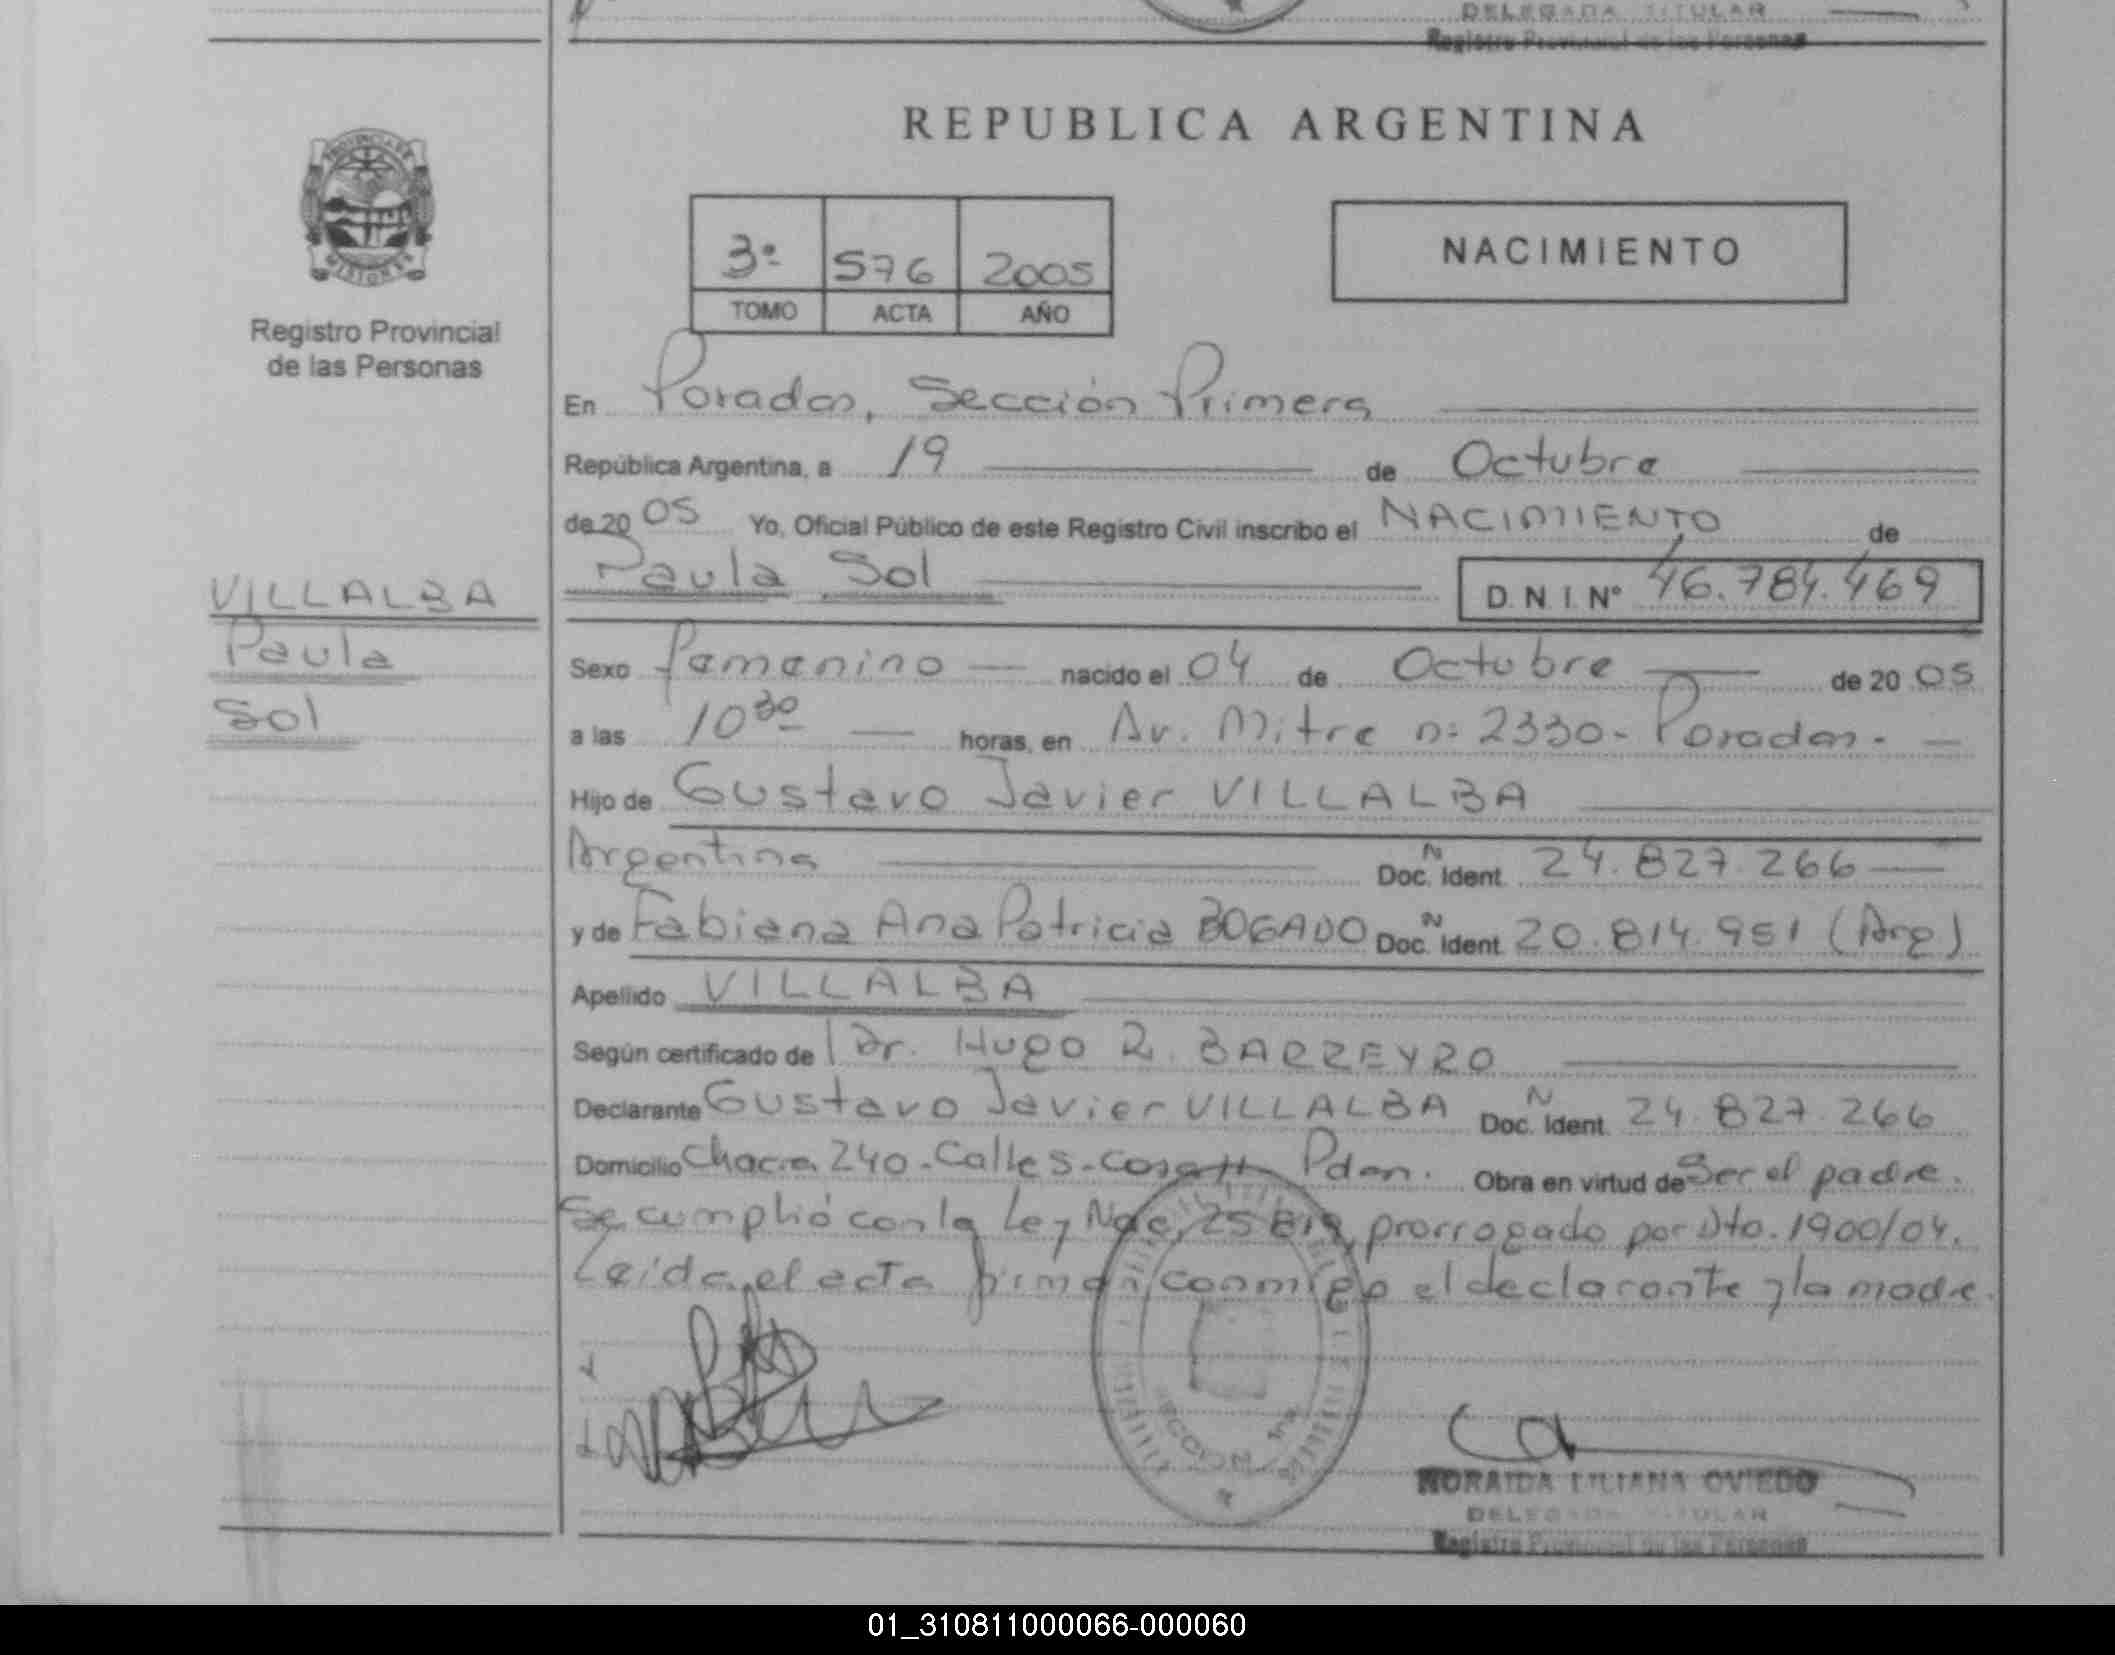 DELEGADA TITULAR
Registro Provincial de las Personas
PROVINCIA DE
MISIONES
Registro Provincial
de las Personas
REPUBLICA ARGENTINA
3º 576 2005
TOMO ACTA AÑO
NACIMIENTO
En Posadas, Sección Primera
República Argentina, a 19 de Octubre
de 2005 Yo, Oficial Público de este Registro Civil inscribo el NACIMIENTO de
Paula Sol D.N.I. Nº 46.784.469
VILLALBA
Paula
Sol
Sexo femenino nacido el 04 de Octubre de 2005
a las 10 30 horas, en Av. Mitre nº 2330- Posadas.-
Hijo de Gustavo Javier VILLALBA
Argentina Doc. N Ident. 24.827.266
y de Fabiana Ana Patricia BOGADO Doc. N Ident. 20.814.951 (Arg)
Apellido VILLALBA
Según certificado de Dr. Hugo R. BARREYRO
Declarante Gustavo Javier VILLALBA Doc. N Ident. 24.827.266
Domicilio Chacra 240-Calle S-Pdas. Obra en virtud de Ser el padre.
Se cumplió con la Ley Nac. 25819 prorrogado por Dto. 1900/04.
Leída el acta firman conmigo el declarante y la madre.
SECCION 1ra
NORAIDA LILIANA OVIEDO
DELEGADA TITULAR
Registro Provincial de las Personas
01_310811000066-000060